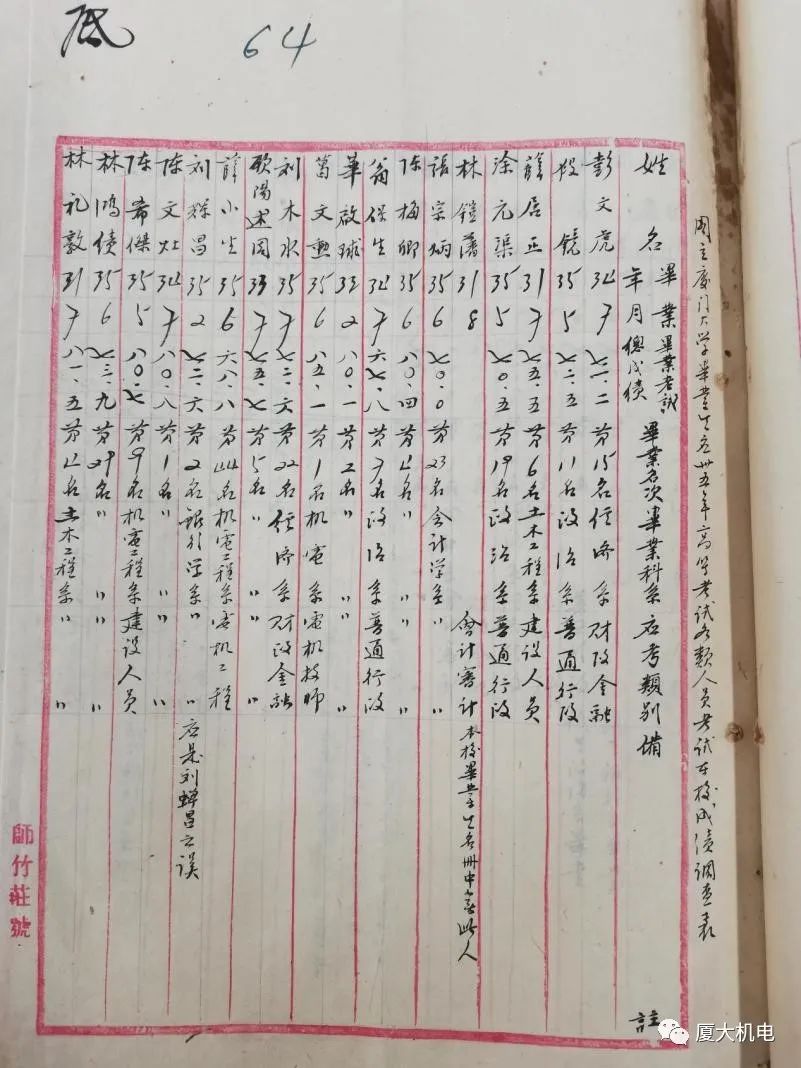 底
64
国立厦门大学毕业生应卅五年高等考试各类人员考试在校成绩调查表
姓名 畢業年月 畢業考試總成績 畢業名次 畢業科系 应考類别 備註
彭文虎 34 7 七一.二 第15名 经济系 财政金融
段镜 35 5 七二.五 第11名 政治系 普通行政
薛居正 31 7 七五.五 第6名 土木工程系 建设人员
涂元渠 35 5 七〇.五 第19名 政治系 普通行政
林鎧藩 31 8 會计審计 本校畢業生名册中無此人
張宗炳 35 6 七〇.0 第23名 会计学系 〃
陈梅卿 35 6 八〇.四 第4名 〃 〃
翁保生 34 7 六七.八 第7名 政治系 普通行政
華啟球 33 2 八〇.一 第2名 〃 〃
葛文勲 35 6 八五.一 第1名 机電系 電机技师
刘木水 35 7 七二.六 第22名 经济系 财政金融
歐陽述周 33 7 七五.七 第5名 〃 〃
薛小生 35 6 六八.八 第44名 机電工程系 電机工程
刘辉昌 35 2 七二.六 第2名 银行学系 〃 应是刘蟬昌之误
陈文灶 34 7 八〇.八 第1名 〃 〃
陈希傑 35 5 八〇.七 第9名 机電工程系 建设人员
林鴻绩 35 6 七三.九 第29名 〃 〃
林礼敦 31 7 八一.五 第4名 土木工程系 〃
師竹莊號
厦大机电